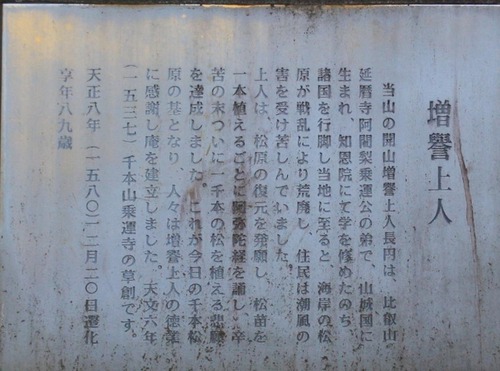 増誉上人
当山の開山増誉上人長円は、比叡山
延暦寺阿闍梨乗運公の弟で、山城国に
生まれ、知恩院にて学を修めたのち、
諸国を行脚し当地に至ると、海岸の松
原が戦乱により荒廃し、住民は潮風の
害を受け苦しんでいました。
上人は、松原の復元を発願し、松苗を
一本植えるごとに阿弥陀経を誦し、辛
苦の末ついに一千本の松を植える悲願
を達成しました。これが今日の千本松
原の基となり、人々は増誉上人の徳業
に感謝し庵を建立しました。天文六年
(一五三七)千本山乗運寺の草創です。
天正八年(一五八〇)一二月二〇日遷化
享年八九歳